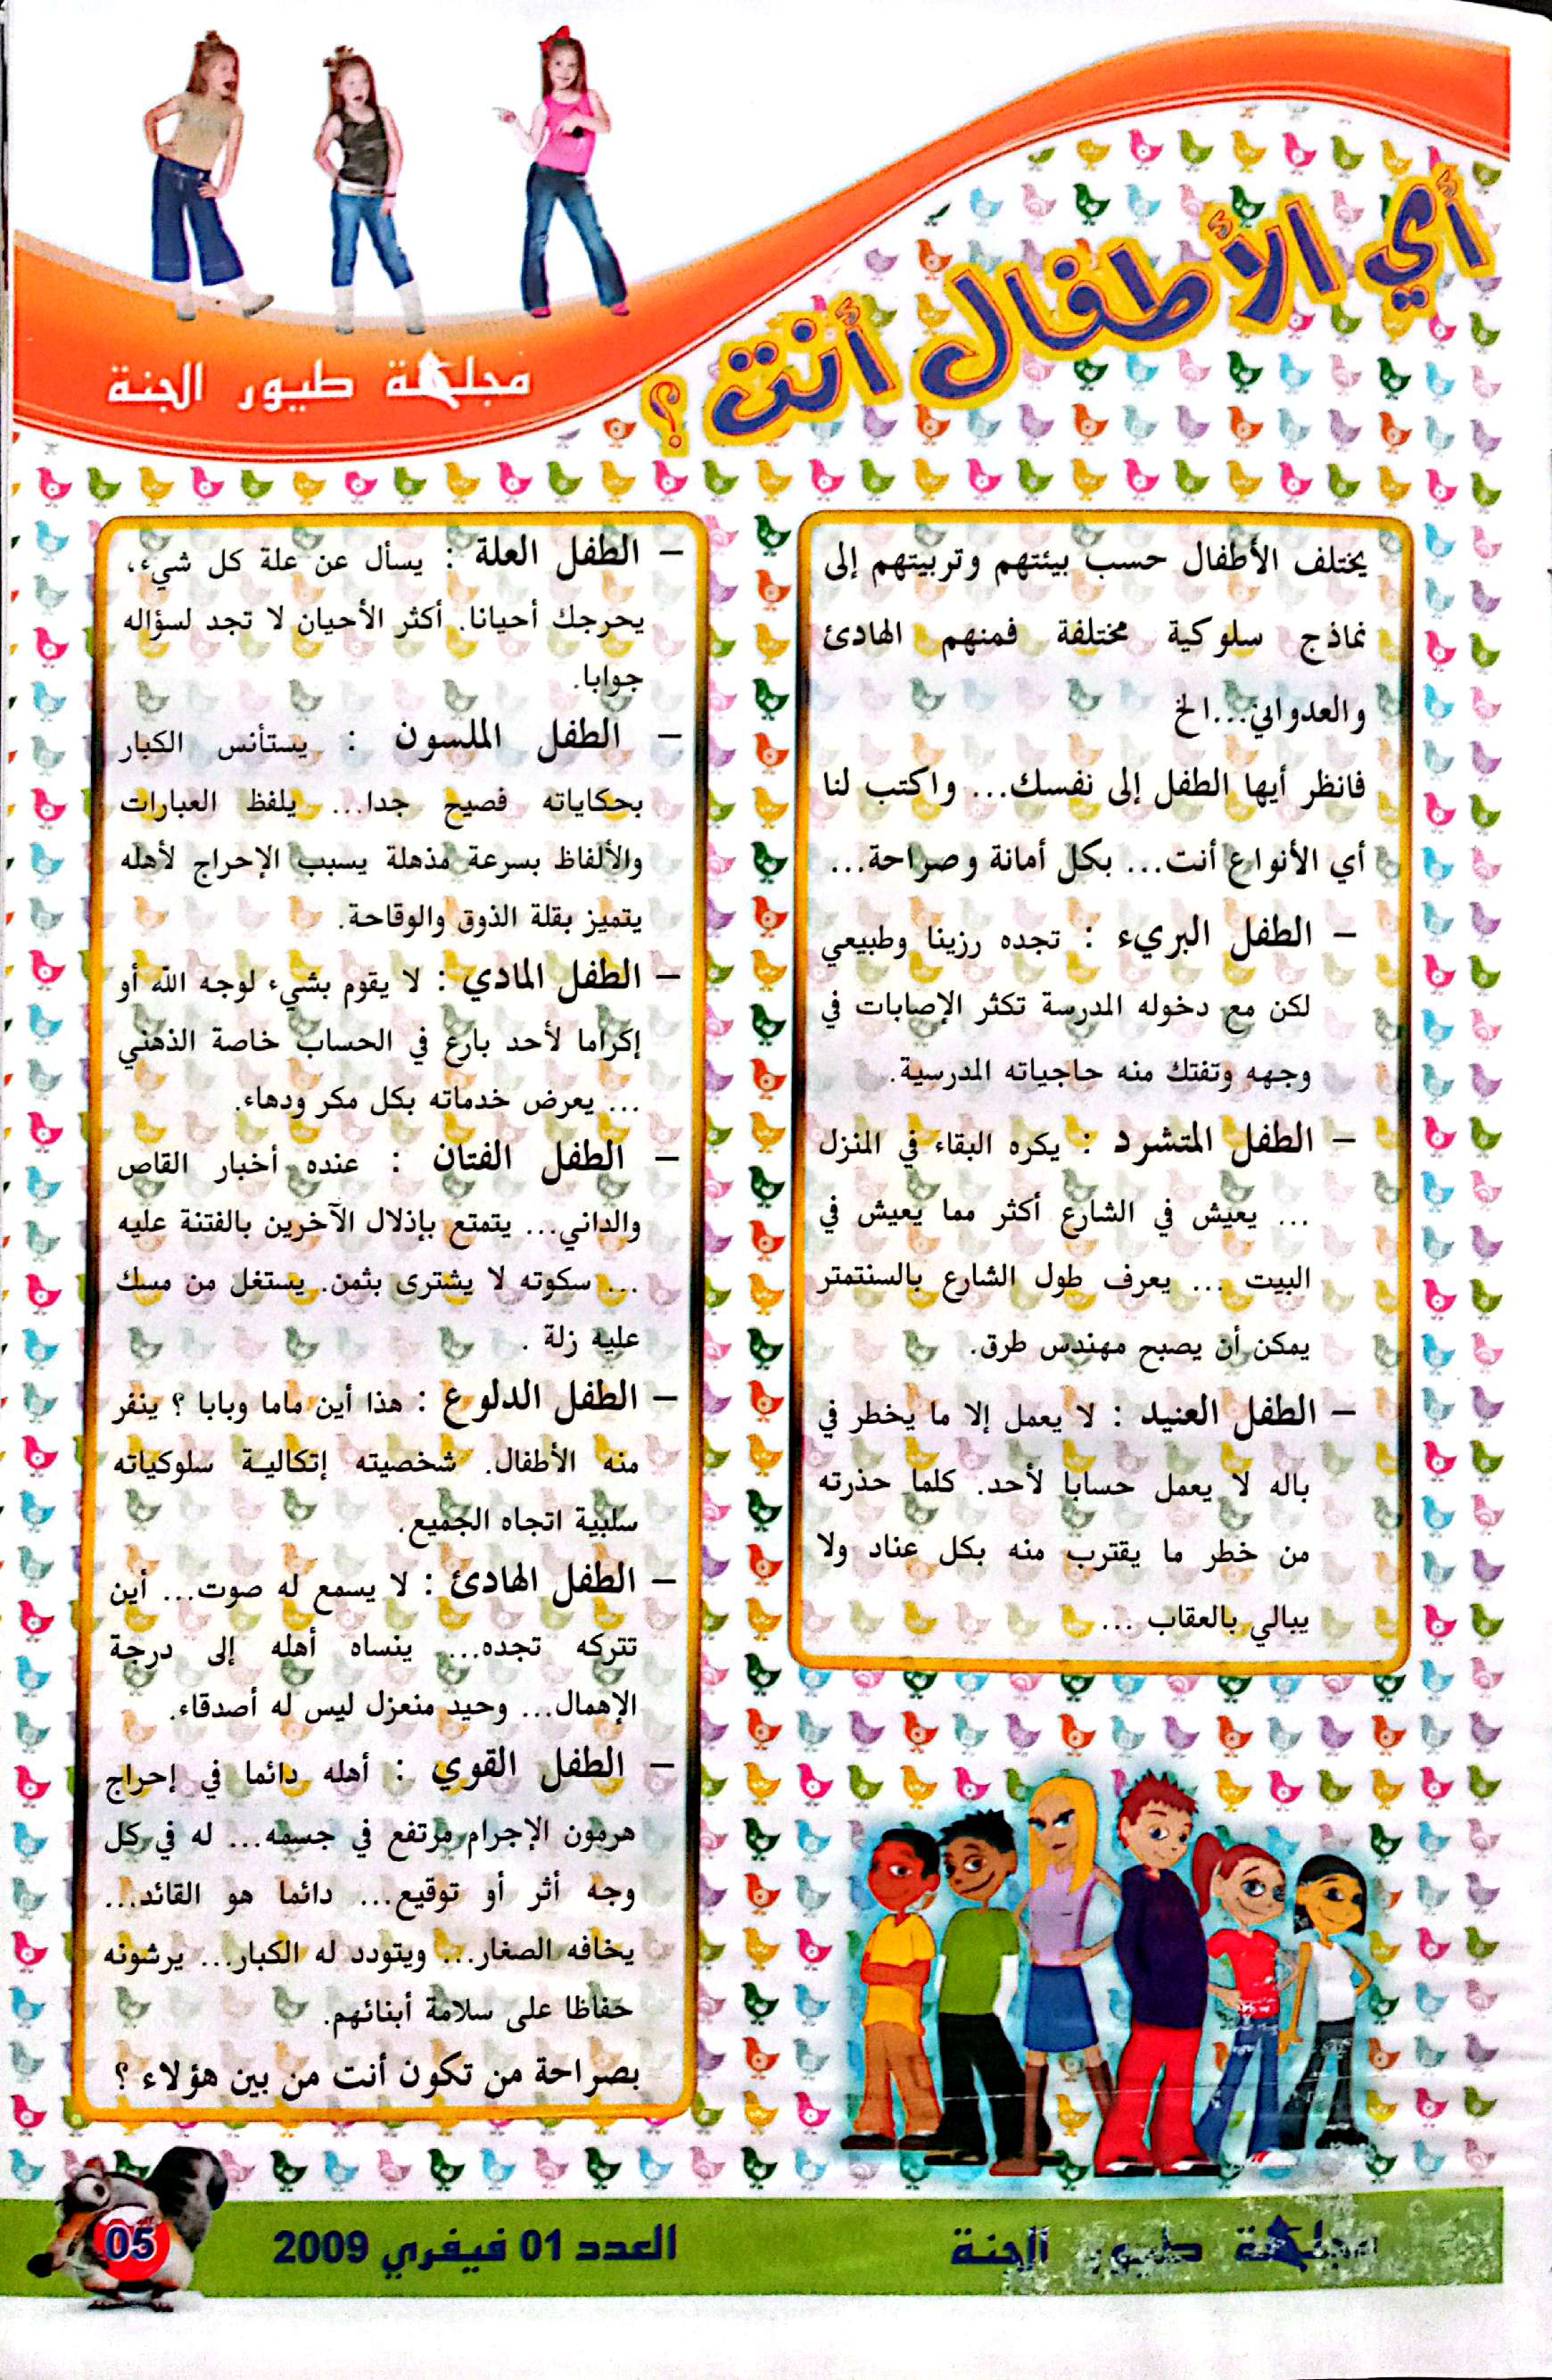 مجلة طيور الجنة
أي الأطفال أنت ؟
يختلف الأطفال حسب بيئتهم وتربيتهم إلى
نماذج سلوكية مختلفة فمنهم الهادئ
والعدواني...الخ
فانظر أيها الطفل إلى نفسك... واكتب لنا
أي الأنواع أنت... بكل أمانة وصراحة...
– الطفل البريء : تجده رزينا وطبيعي
لكن مع دخوله المدرسة تكثر الإصابات في
وجهه وتفتك منه حاجياته المدرسية.
– الطفل المتشرد : يكره البقاء في المنزل
... يعيش في الشارع أكثر مما يعيش في
البيت ... يعرف طول الشارع بالسنتمتر
يمكن أن يصبح مهندس طرق.
– الطفل العنيد : لا يعمل إلا ما يخطر في
باله لا يعمل حسابا لأحد. كلما حذرته
من خطر ما يقترب منه بكل عناد ولا
يبالي بالعقاب ...
– الطفل العلة : يسأل عن علة كل شيء،
يحرجك أحيانا. أكثر الأحيان لا تجد لسؤاله
جوابا.
– الطفل الملسون : يستأنس الكبار
بحكاياته فصيح جدا... يلفظ العبارات
والألفاظ بسرعة مذهلة يسبب الإحراج لأهله
يتميز بقلة الذوق والوقاحة.
– الطفل المادي : لا يقوم بشيء لوجه الله أو
إكراما لأحد بارع في الحساب خاصة الذهني
... يعرض خدماته بكل مكر ودهاء.
– الطفل الفتان : عنده أخبار القاص
والداني... يتمتع بإذلال الآخرين بالفتنة عليه
... سكوته لا يشترى بثمن. يستغل من مسك
عليه زلة .
– الطفل الدلوع : هذا أين ماما وبابا ؟ ينفر
منه الأطفال. شخصيته إتكالية سلوكياته
سلبية اتجاه الجميع.
– الطفل الهادئ : لا يسمع له صوت... أين
تتركه تجده... ينساه أهله إلى درجة
الإهمال... وحيد منعزل ليس له أصدقاء.
– الطفل القوي : أهله دائما في إحراج
هرمون الإجرام مرتفع في جسمه... له في كل
وجه أثر أو توقيع... دائما هو القائد...
يخافه الصغار... ويتودد له الكبار... يرشونه
حفاظا على سلامة أبنائهم.
بصراحة من تكون أنت من بين هؤلاء ؟
مجلة طيور الجنة
العدد 01 فيفري 2009
05